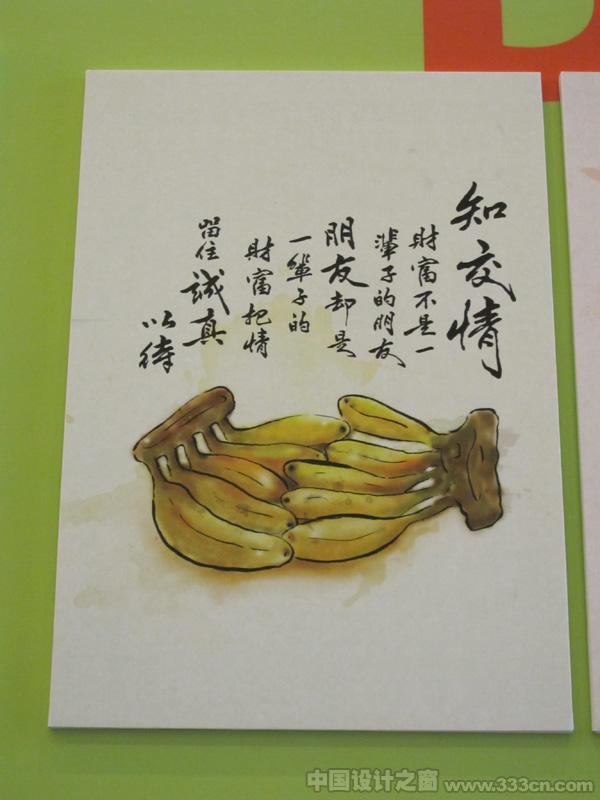 知交情
財富不是一
輩子的朋友
朋友却是
一輩子的
財富把情
留住誠真
以待
中国设计之窗 www.333cn.com